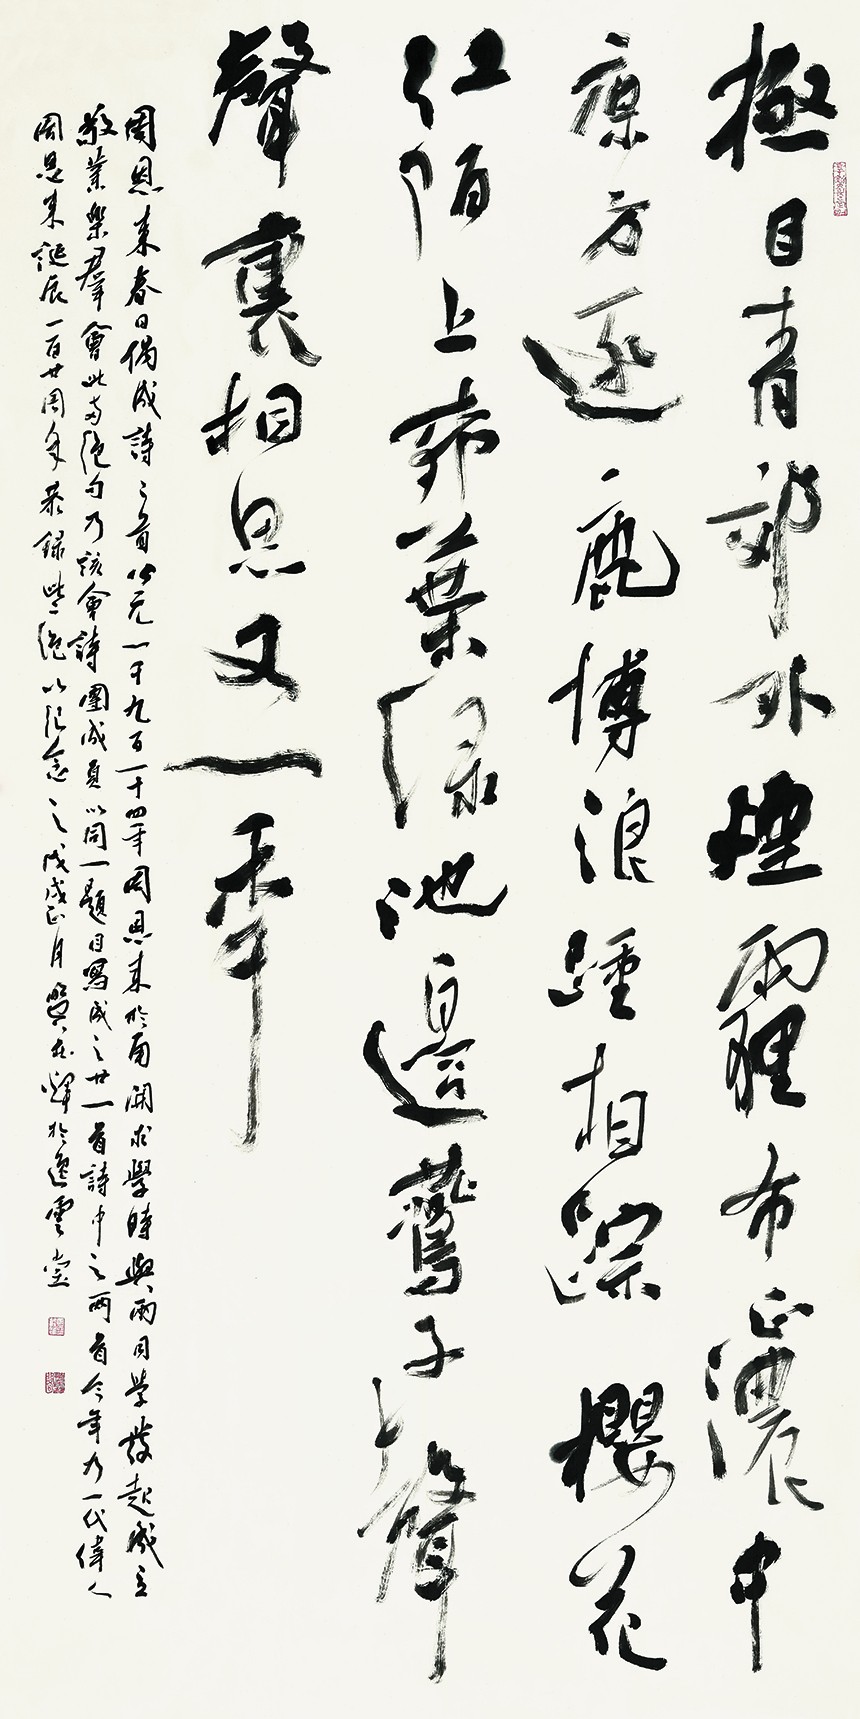 極目青郊外煙霾布正濃中
原方逐鹿博浪踵相踪櫻花
红陌上柳葉绿池邊鷰子聲
聲裏相思又一秊
周恩来春日偶成詩二首公元一千九百一十四年周恩来於南開求學時與兩同学發起成立
敬業樂群會此兩绝句乃該會詩團成員以同一題目寫成之廿一首詩中之兩首今年乃一代偉人
周恩来誕辰一百廿周年恭録此二绝以纪念之戊戌正月於逸雲堂